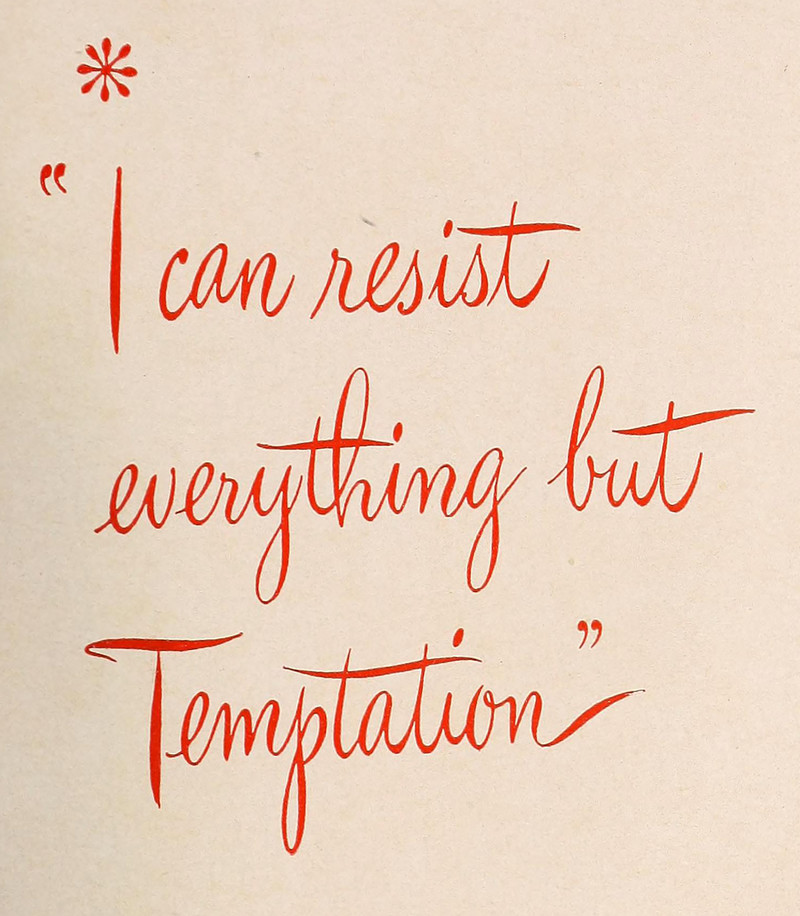 “I can resist
everything but
Temptation”